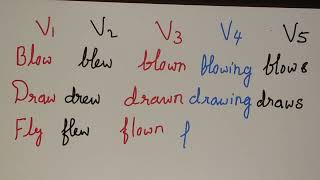 V1 V2 V3 V4 V5
Blow blew blown blowing blows
Draw drew drawn drawing draws
Fly flew flown f